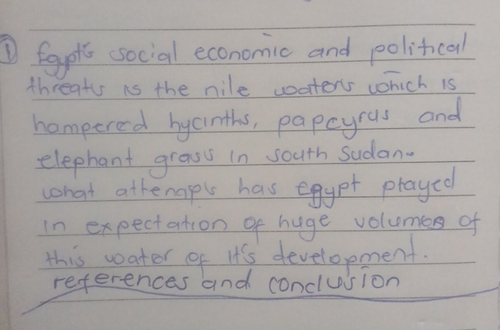 ① Egypt's social economic and political
threats is the nile waters which is
hampered hycinths, papcyrus and
elephant grass in south Sudan.
what attemapts has egypt played
in expectation of huge volumes of
this water of it's development.
references and conclusion